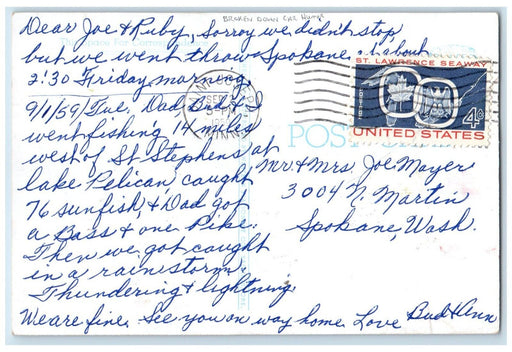 BROKEN DOWN CAR HUMOR
Dear Joe & Ruby, Sorry we didn't stop
but we went throw Spokane at about
2:30 Friday morning.
9/1/59/Tue. Dad Bud & I
went fishing 14 miles
west of St Stephens at
lake Pelican, caught
76 sunfish, & Dad got
a Bass & one Pike.
Then we got caught
in a rain storm.
Thundering & lightning
We are fine. See you on way home. Love Bud & Ann
ST. LAWRENCE SEAWAY
4¢
UNITED STATES
POST
Mr & Mrs Joe Mayer
3004 N. Martin
Spokane, Wash.